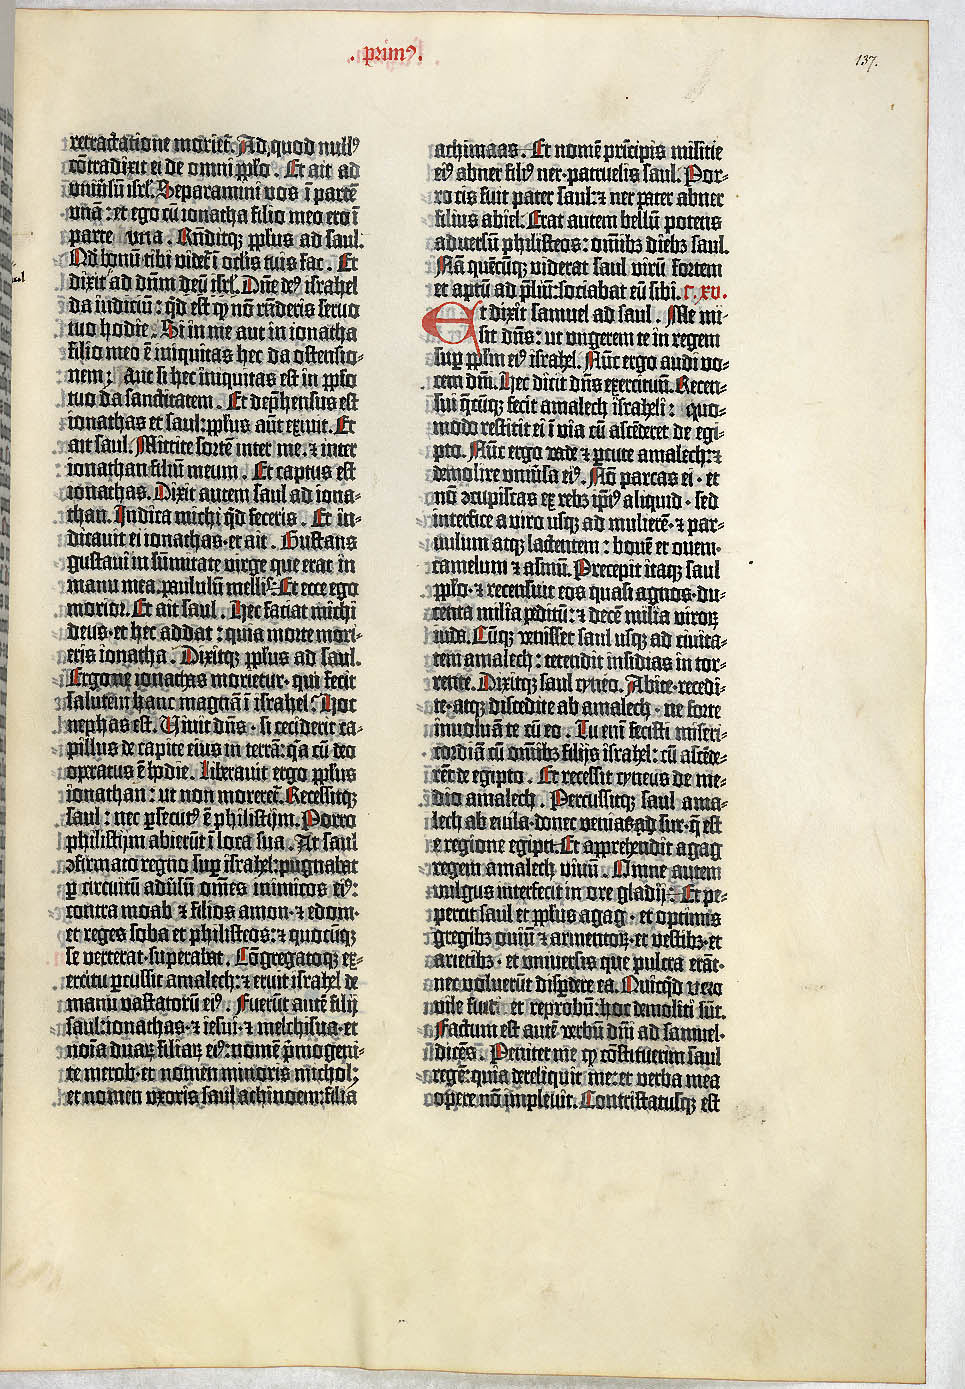 . primꝰ.
137.
retractatione moriet᷑. Ad quod nullꝰ
cōtradixit ei de omni pp̄lo. Et ait ad
vniūsū isrl̄. Separamini vos ī partē
vnā : et ego cū ionatha filio meo ero ī
parte vna. Rn̄ditqꝫ pp̄lus ad saul.
Qd̄ bonū tibi videt᷑ ī oclis tuis fac. Et
dixit ad dn̄m deū isrl̄. Dn̄e deꝰ israhel
da iudiciū : qd̄ est qꝫ nō rn̄deris seruo
tuo hodie. Si in me aut in ionatha
filio meo ē iniquitas hec da ostensio-
nem; Aut si hec iniquitas est in pp̄lo
tuo da sanctitatem. Et dep̄hensus est
ionathas et saul: pp̄lus aūt exiuit. Et
ait saul. Mittite sortē inter me. ⁊ inter
ionathan filiū meum. Et captus est
ionathas. Dixit autem saul ad iona-
than. Indica michi qd̄ feceris. Et in-
dicauit ei ionathas· et ait. Gustans
gustaui in sūmitate virge que erat in
manu mea. paululū mellis: Et ecce ego
morior. Et ait saul. Hec faciat michi
deus· et hec addat : quia morte mori-
eris ionatha. Dixitqꝫ pp̄lus ad saul.
Ergone ionathas morietur· qui fecit
salutem hanc magnā ī israhel? Hoc
nephas est. Viuit dn̄s· si ceciderit ca-
pillus de capite eius in terrā: qa cū deo
oꝑatus ē hodie. Liberauit ergo pp̄lus
ionathan : ut non moreret᷑. Recessitqꝫ
saul : nec ꝑsecutꝰ ē philistijm. Porro
philistijm abierūt ī loca sua. At saul
ꝯfirmato regno suꝑ israhel: pugnabat
ꝑ circuitū adūsū om̄es inimicos eiꝰ:
contra moab ⁊ filios amon· ⁊ edom·
et reges soba et philisteos: ⁊ quocūqꝫ
se verterat· superabat. Cōgregatoqꝫ ex-
ercitu ꝑcussit amalech: ⁊ eruit israhel de
manu vastatorū eiꝰ. Fuerūt autē filij
saul: ionathas· ⁊ iesui· ⁊ melchisua· et
noīa duaꝝ filiaꝝ eiꝰ: nomē p̄mogeni-
te merob· et nomen minoris michol:
et nomen vxoris saul achinoem: filia
achimaas. Et nomē prīcipis militie
eiꝰ abner filiꝰ ner· patruelis saul. Por-
ro cis fuit pater saul: ⁊ ner pater abner
filius abiel. Erat autem bellū potens
aduersū philisteos: om̄ibꝫ diebꝫ saul.
Nā quēcūqꝫ viderat saul virū fortem
et aptū ad p̄liū: sociabat eū sibi. c. xv.
Et dixit samuel ad saul. Me mi-
sit dn̄s: ut vngerem te in regem
suꝑ pp̄lm eiꝰ israhel. Nūc ergo audi vo-
cem dn̄i. Hec dicit dn̄s exercituū. Recen-
sui qcūqꝫ fecit amalech israheli : quo-
modo restitit ei ī via cū ascēderet de egi-
pto. Nūc ergo vade ⁊ ꝑcute amalech: ⁊
demolire vniūsa eiꝰ. Nō parcas ei· et
nō ꝯcupiscas ex rebꝫ ip̄iꝰ aliquid· sed
interfice a viro usqꝫ ad mulierē· ⁊ par-
uulum atqꝫ lactentem : bouē et ouem·
camelum ⁊ asinū. Precepit itaqꝫ saul
pp̄lo· ⁊ recensuit eos quasi agnos· du-
centa milia peditū: ⁊ decē milia viroꝝ
iuda. Cūqꝫ venisset saul usqꝫ ad ciuita-
tem amalech : tetendit insidias in tor-
rente. Dixitqꝫ saul cyneo. Abite· recedi-
te· atqꝫ discedite ab amalech· ne forte
inuoluā te cū eo. Tu eni fecisti miseri-
cordiā cū om̄ibꝫ filijs israhel: cū ascēde-
rēt de egipto. Et recessit cyneus de me-
dio amalech. Percussitqꝫ saul ama-
lech ab euila· donec venias ad sur· q̄ est
e regione egipti. Et apprehendit agag
regem amalech viuū. Omne autem
vulgus interfecit in ore gladij: Et pe-
percit saul et pp̄lus agag· et optimis
gregibꝫ ouiū ⁊ armentoꝝ· et vestibꝫ· et
arietibꝫ· et vniuersis que pulcra erāt·
nec voluerūt disꝑdere ea. Quicqd̄ vero
vile fuit et reprobū: hoc demoliti sūt.
Factum est autē verbū dn̄i ad samuel·
dicēs. Penitet me qꝫ cōstituerim saul
regē: quia dereliquit me: et verba mea
opere nō impleuit. Contristatusqꝫ est